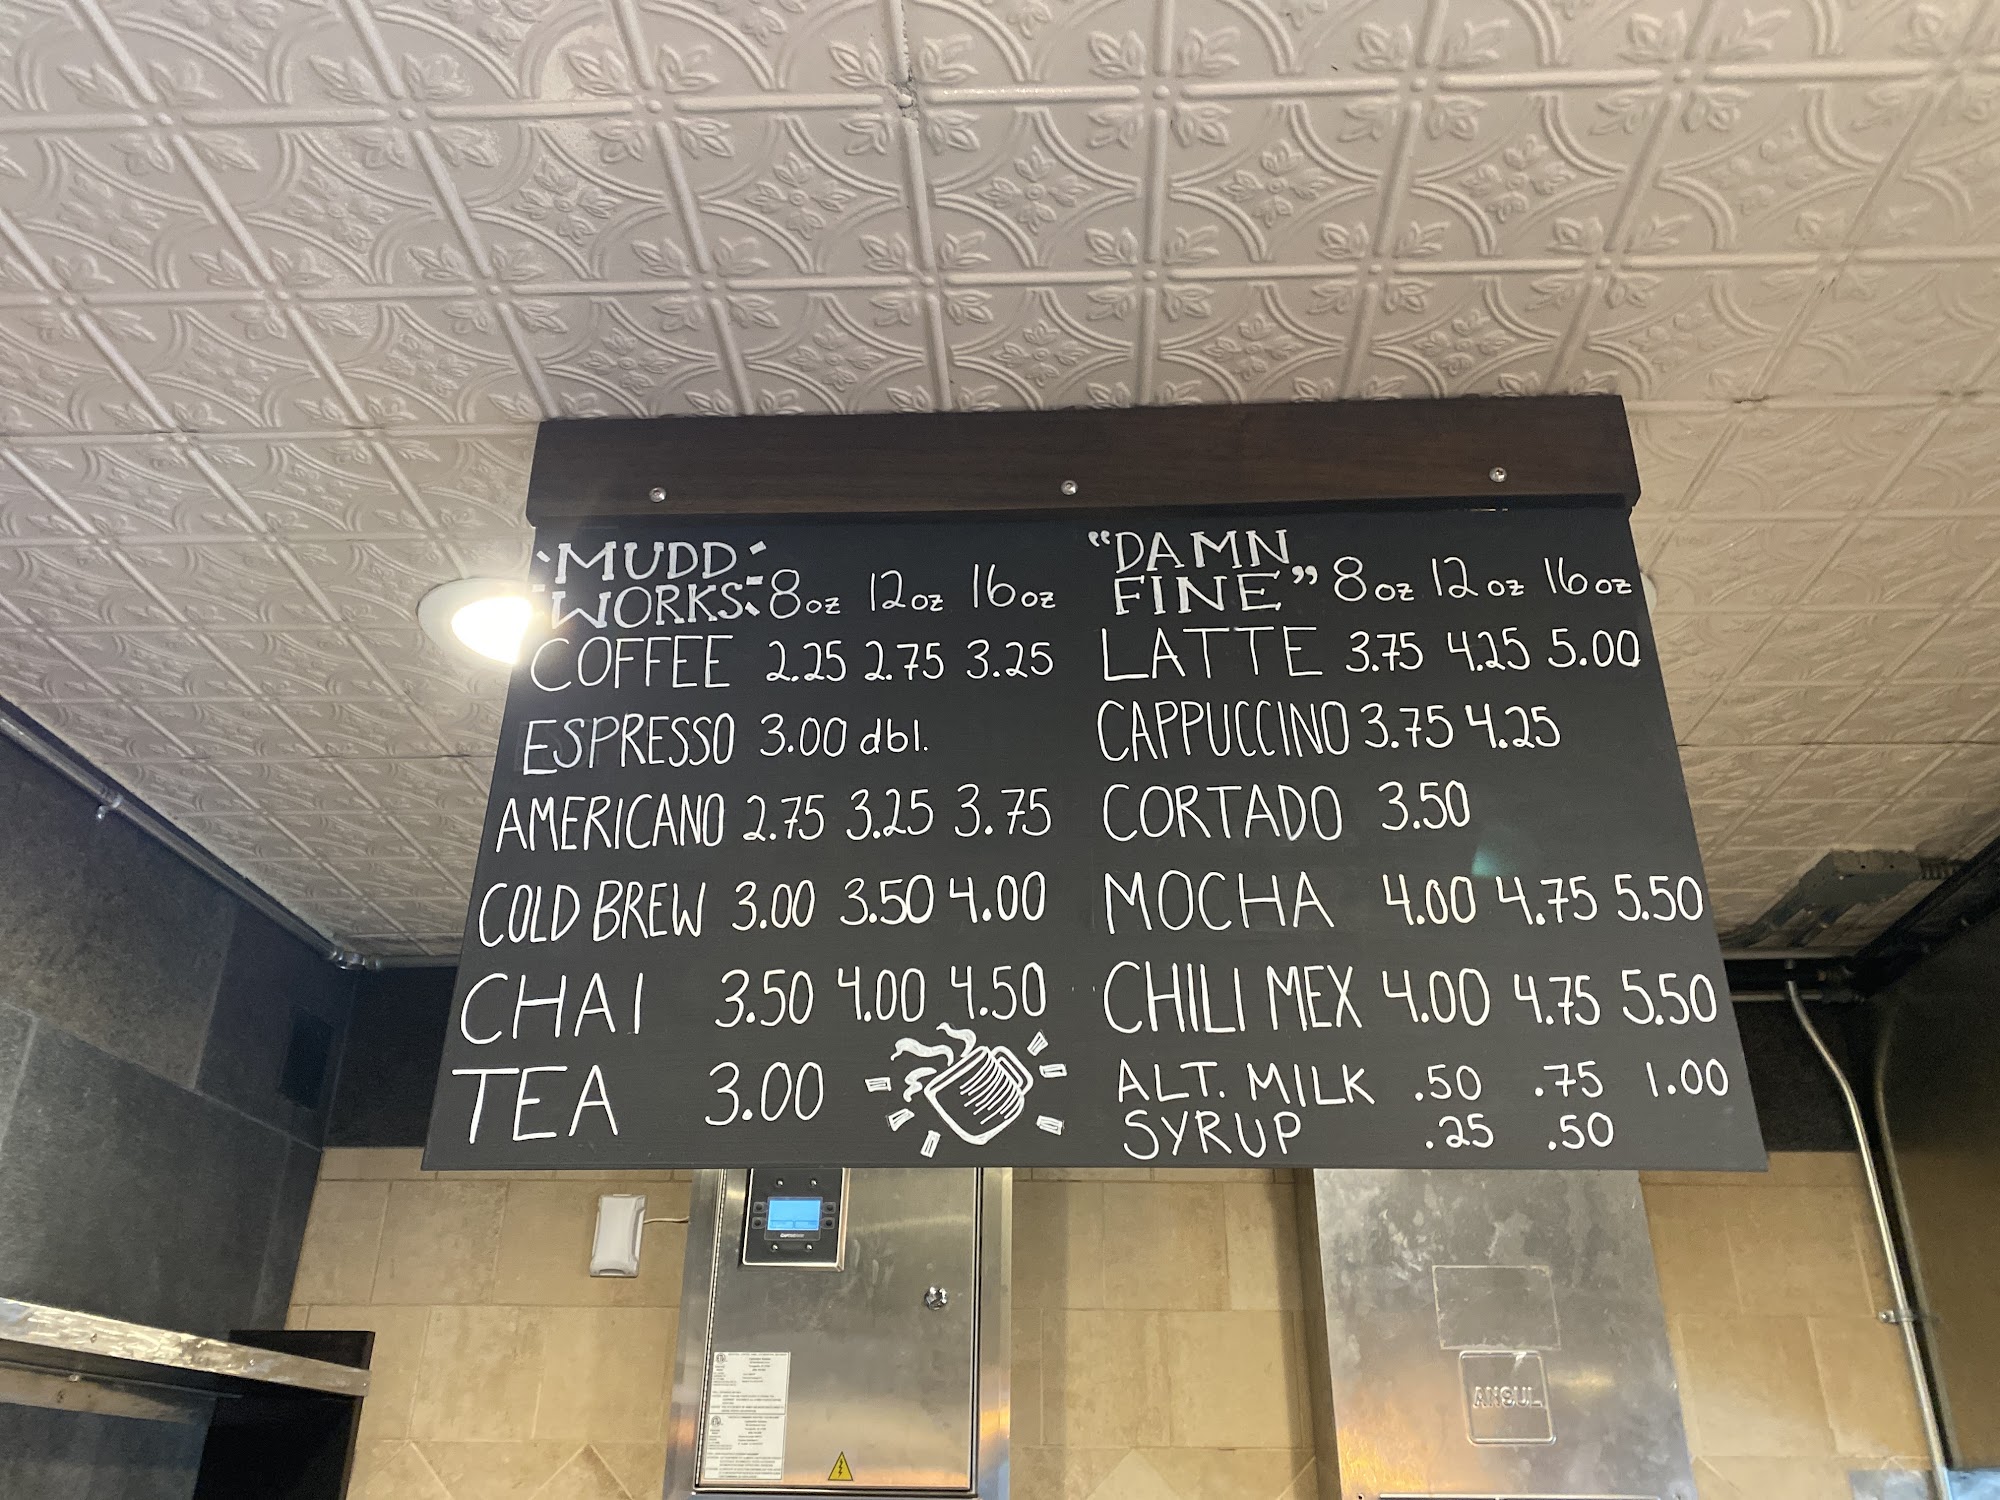 MUDD
WORKS 8oz 12oz 16oz
COFFEE 2.25 2.75 3.25
ESPRESSO 3.00 dbl.
AMERICANO 2.75 3.25 3.75
COLD BREW 3.00 3.50 4.00
CHAI 3.50 4.00 4.50
TEA 3.00
"DAMN
FINE" 8oz 12oz 16oz
LATTE 3.75 4.25 5.00
CAPPUCCINO 3.75 4.25
CORTADO 3.50
MOCHA 4.00 4.75 5.50
CHILI MEX 4.00 4.75 5.50
ALT. MILK .50 .75 1.00
SYRUP .25 .50
ANSUL